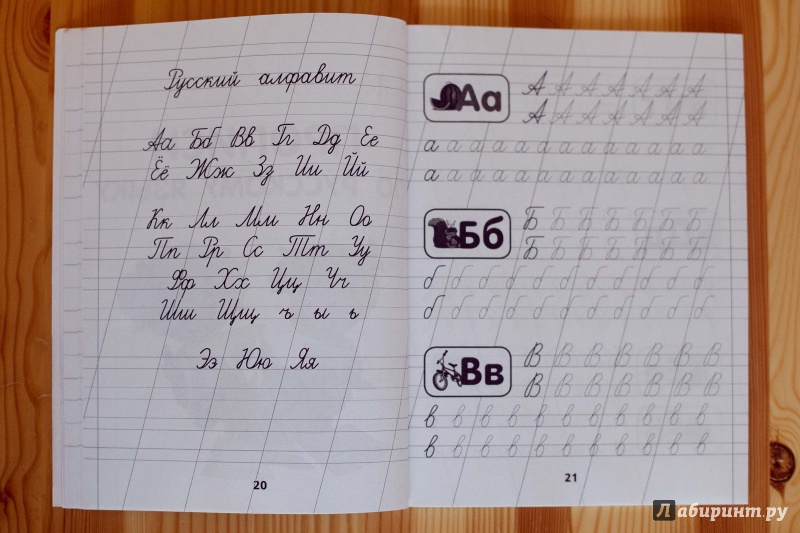 Русский алфавит
Аа Бб Вв Гг Дд Ее
Ёё Жж Зз Ии Йй
Кк Лл Мм Нн Оо
Пп Рр Сс Тт Уу
Фф Хх Цц Чч
Шш Щщ ъ ы ь
Ээ Юю Яя
20
Аа
А А А А А А А
А А А А А А А
а а а а а а а а а а а
а а а а а а а а а а а
Бб
Б Б Б Б Б Б Б
Б Б Б Б Б Б Б
б б б б б б б б б б б
б б б б б б б б б б б
Вв
В В В В В В В
В В В В В В В
в в в в в в в в в в в
в в в в в в в в в в в
21
Лабиринт.ру